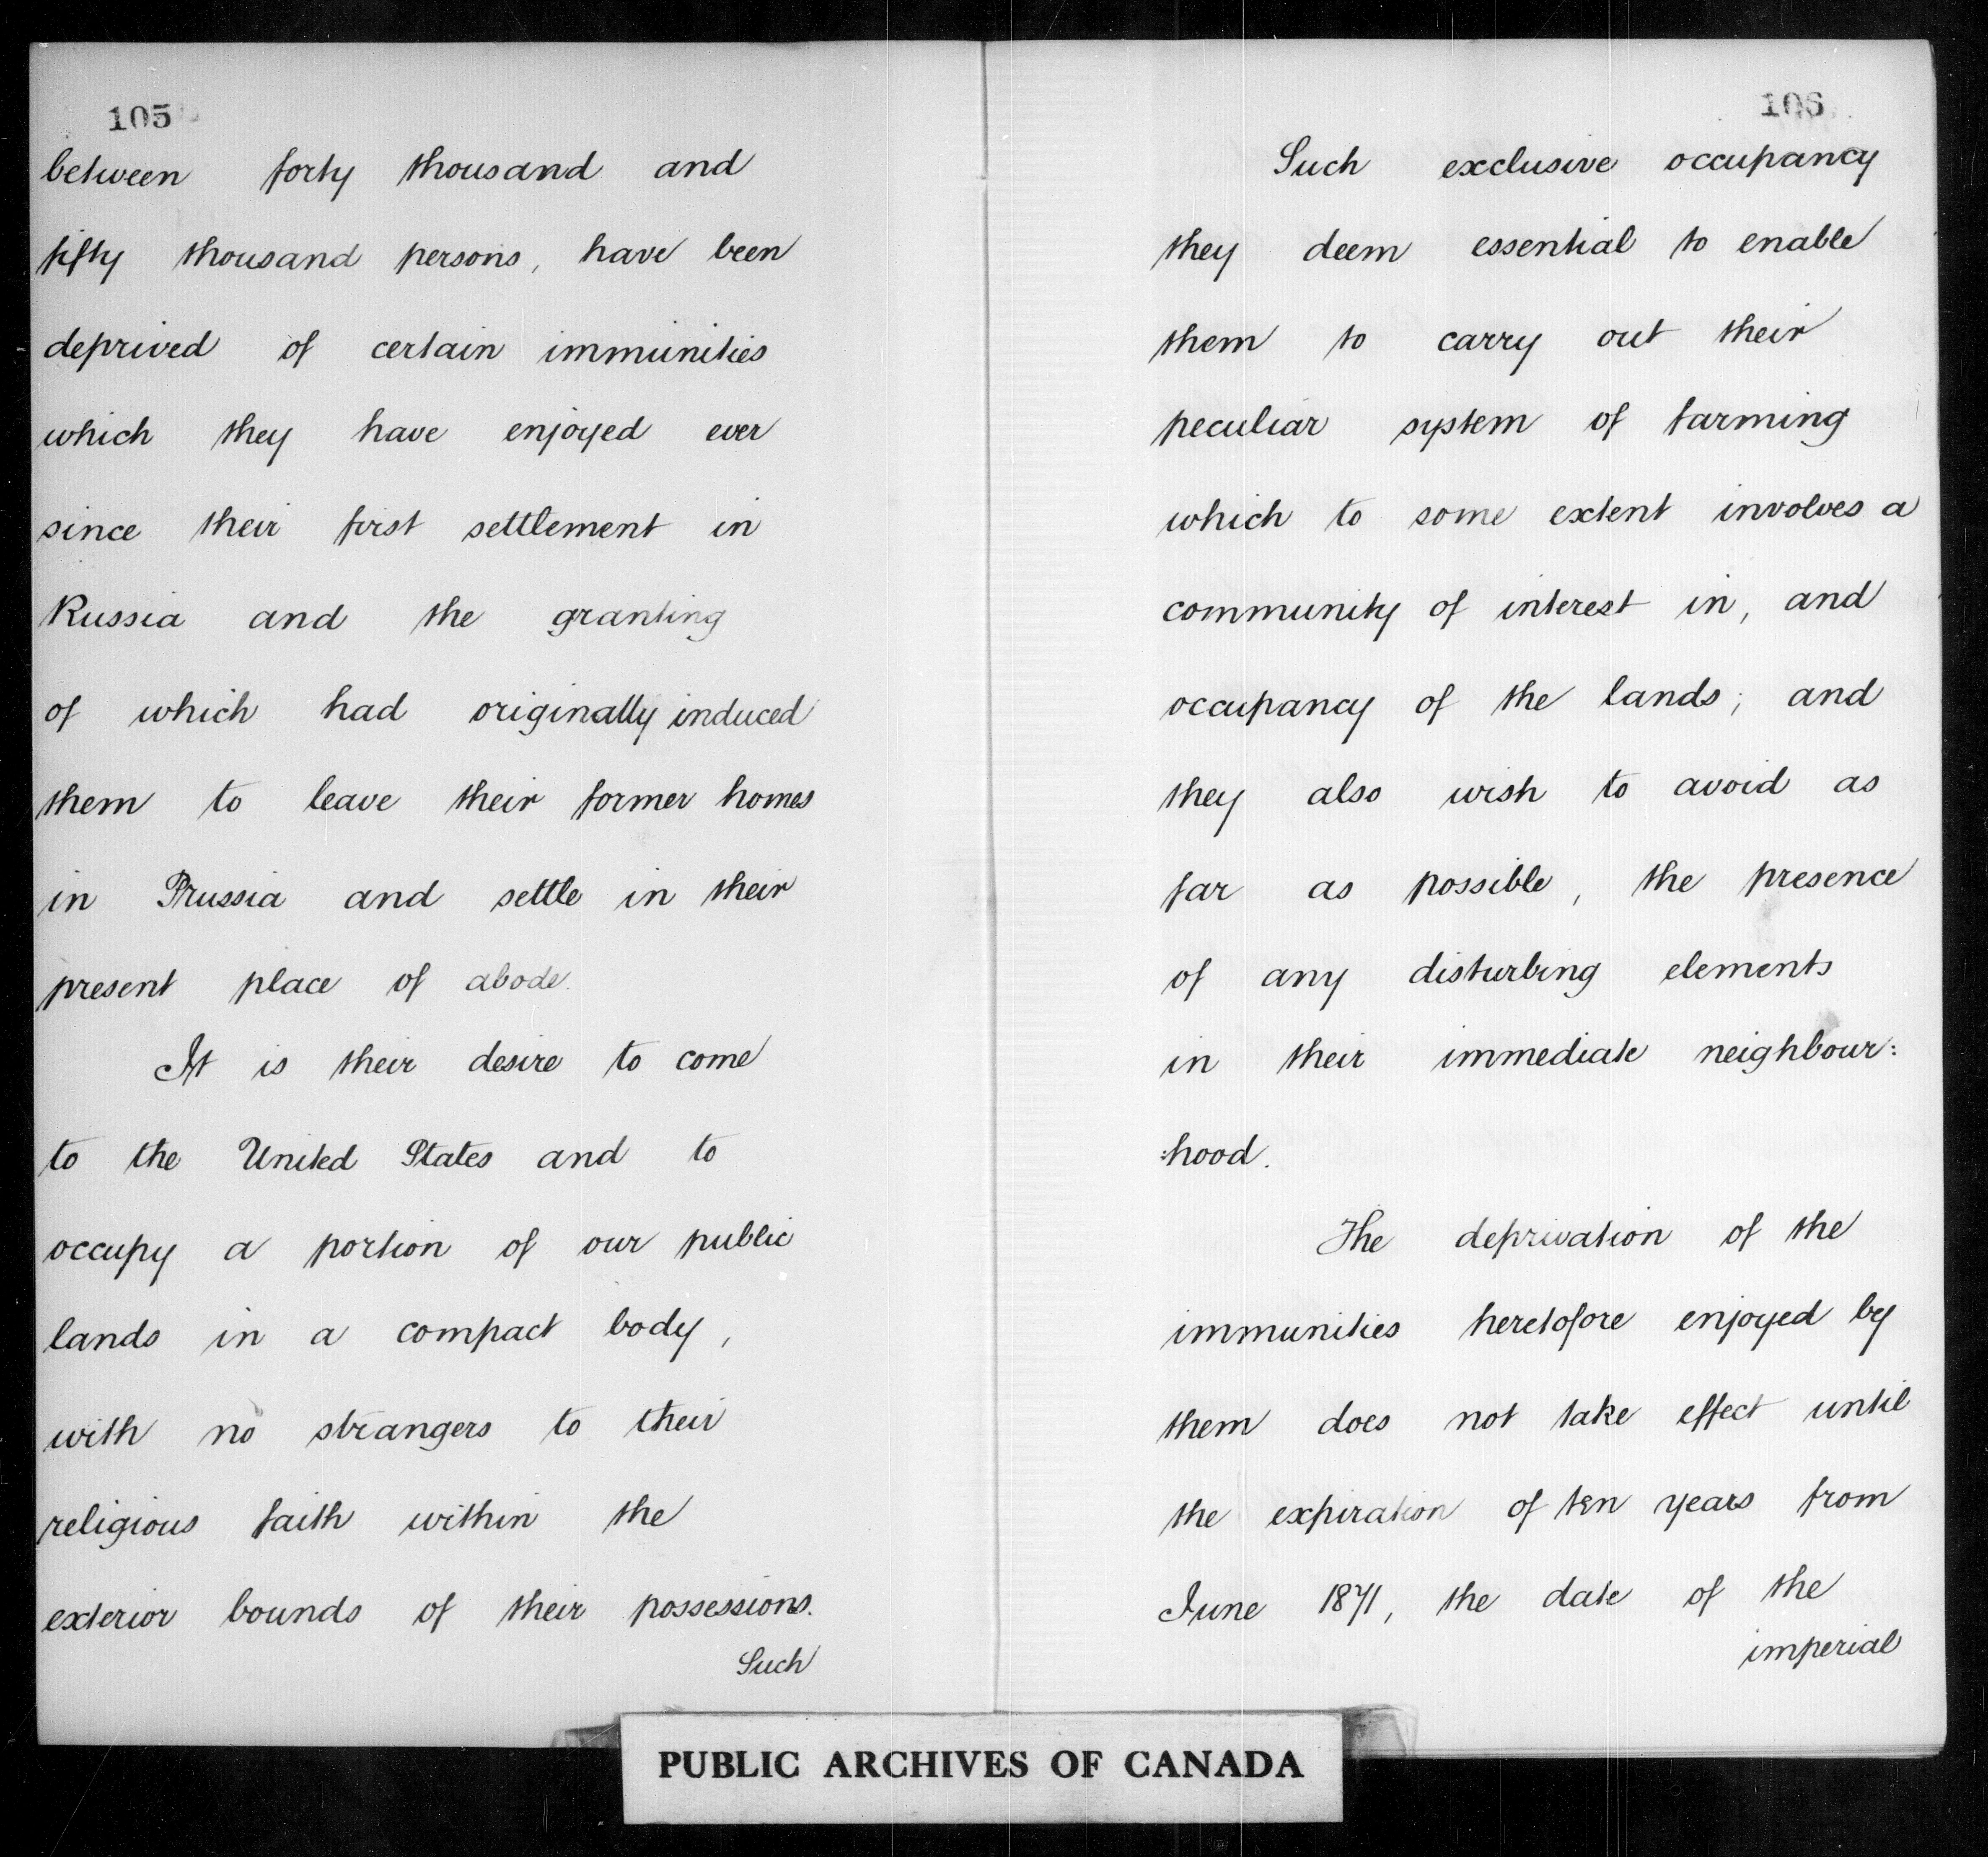 105
between forty thousand and
fifty thousand persons, have been
deprived of certain immunities
which they have enjoyed ever
since their first settlement in
Russia and the granting
of which had originally induced
them to leave their former homes
in Prussia and settle in their
present place of abode.
It is their desire to come
to the United States and to
occupy a portion of our public
lands in a compact body,
with no strangers to their
religious faith within the
exterior bounds of their possessions.
Such
106
Such exclusive occupancy
they deem essential to enable
them to carry out their
peculiar system of farming
which to some extent involves a
community of interest in, and
occupancy of the lands; and
they also wish to avoid as
far as possible, the presence
of any disturbing elements
in their immediate neighbour:
:hood.
The deprivation of the
immunities heretofore enjoyed by
them does not take effect until
the expiration of ten years from
June 1871, the date of the
imperial
PUBLIC ARCHIVES OF CANADA